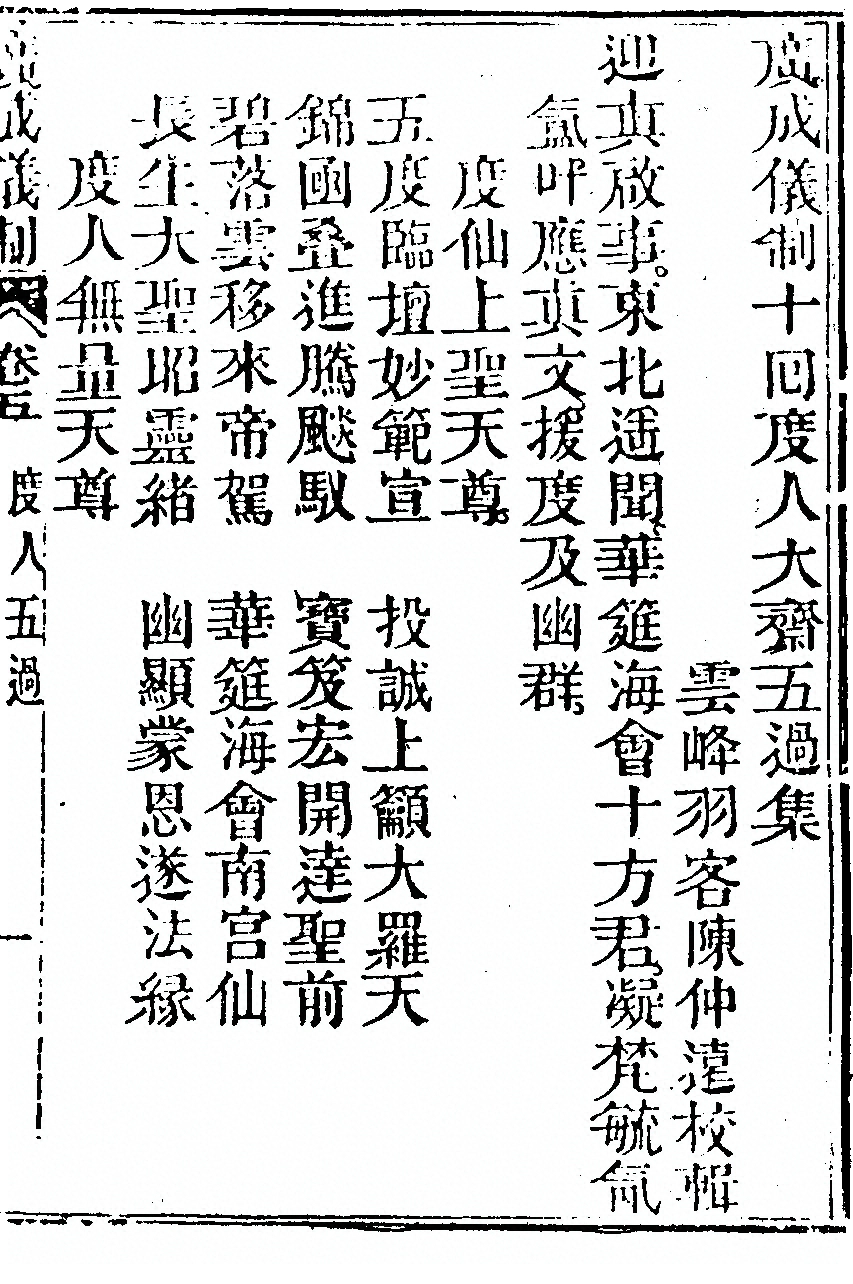 廣成儀制十回度人大齋五過集
雲峰羽客陳仲遠校輯
迎真啟事。東北遥聞、華筵海會十方君。凝梵毓氤
氳。叶應真文。援度及幽群。
度仙上聖天尊。
五度臨壇妙範宣　投誠上籲大羅天
錦函叠進騰飈馭　寶笈宏開達聖前
碧落雲移來帝駕　華筵海會南宮仙
長生大聖昭靈緒　幽顯蒙恩遂法緣
度人無量天尊
廣成儀制 卷五 度人五過 一